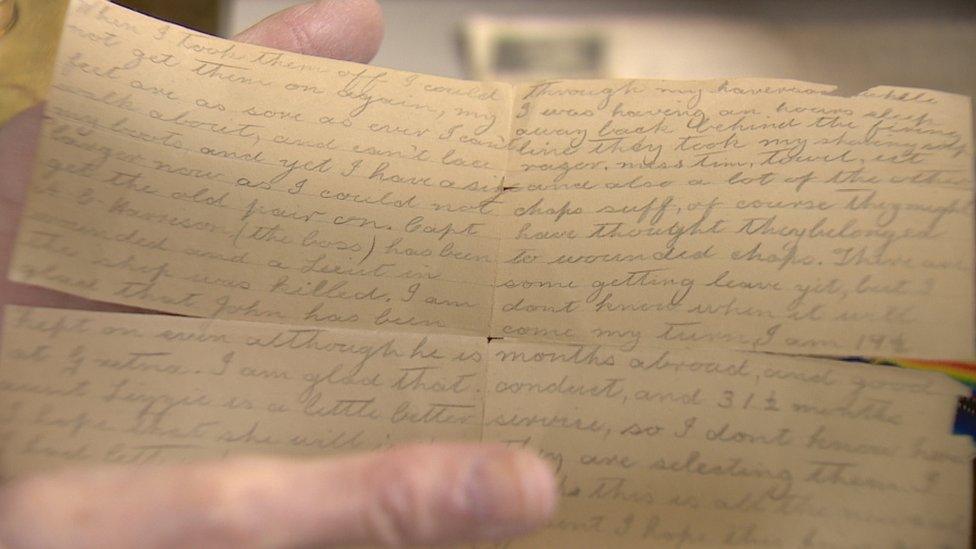 When I took them off I could
not get them on again, my
feet are as sore as ever I can't
walk about, and can't lace
my boots and yet I have a size
larger now as I could not
get the old pair on. Capt
Harrison, (the boss) has been
wounded and a Lieut in
the shop was killed. I am
glad that John has been
kept on even although he is
at Gretna. I am glad that
aunt Lizzie is a little better
I hope that she will
through my haversac while
I was having an hours sleep
away back behind the firing
line they took my shaving soap
razor, mess tin, towel, ect
and also a lot of the other
chaps suff, of course they might
have thought they belonged
to wounded chaps. There are
some getting leave yet, but I
dont know when it will
come my turn, I am 19½
months abroad, and good
conduct, and 31½ months
service, so I dont know how
they are selecting them. I
this is all the
I hope this